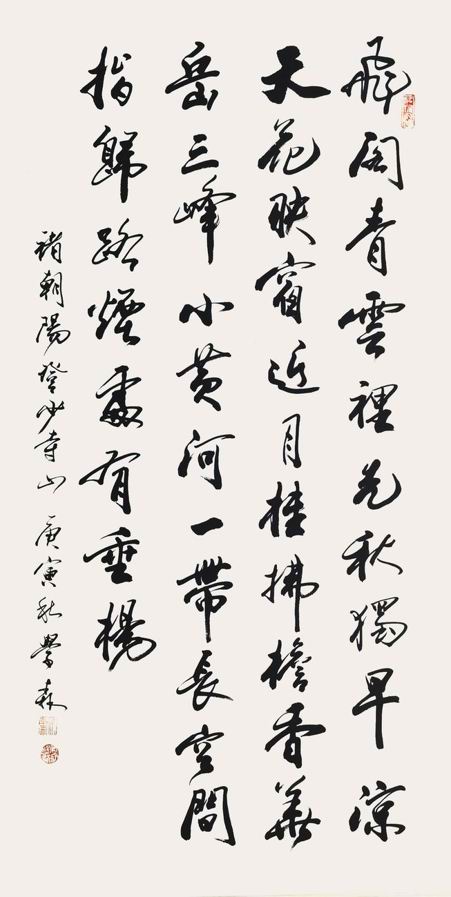 飛閣青雲裡先秋獨早涼
天花映窗近月桂拂檐香華
岳三峰小黄河一帶長空間
指歸路煙處有垂楊
褚朝陽登少寺山 庚寅秋學森